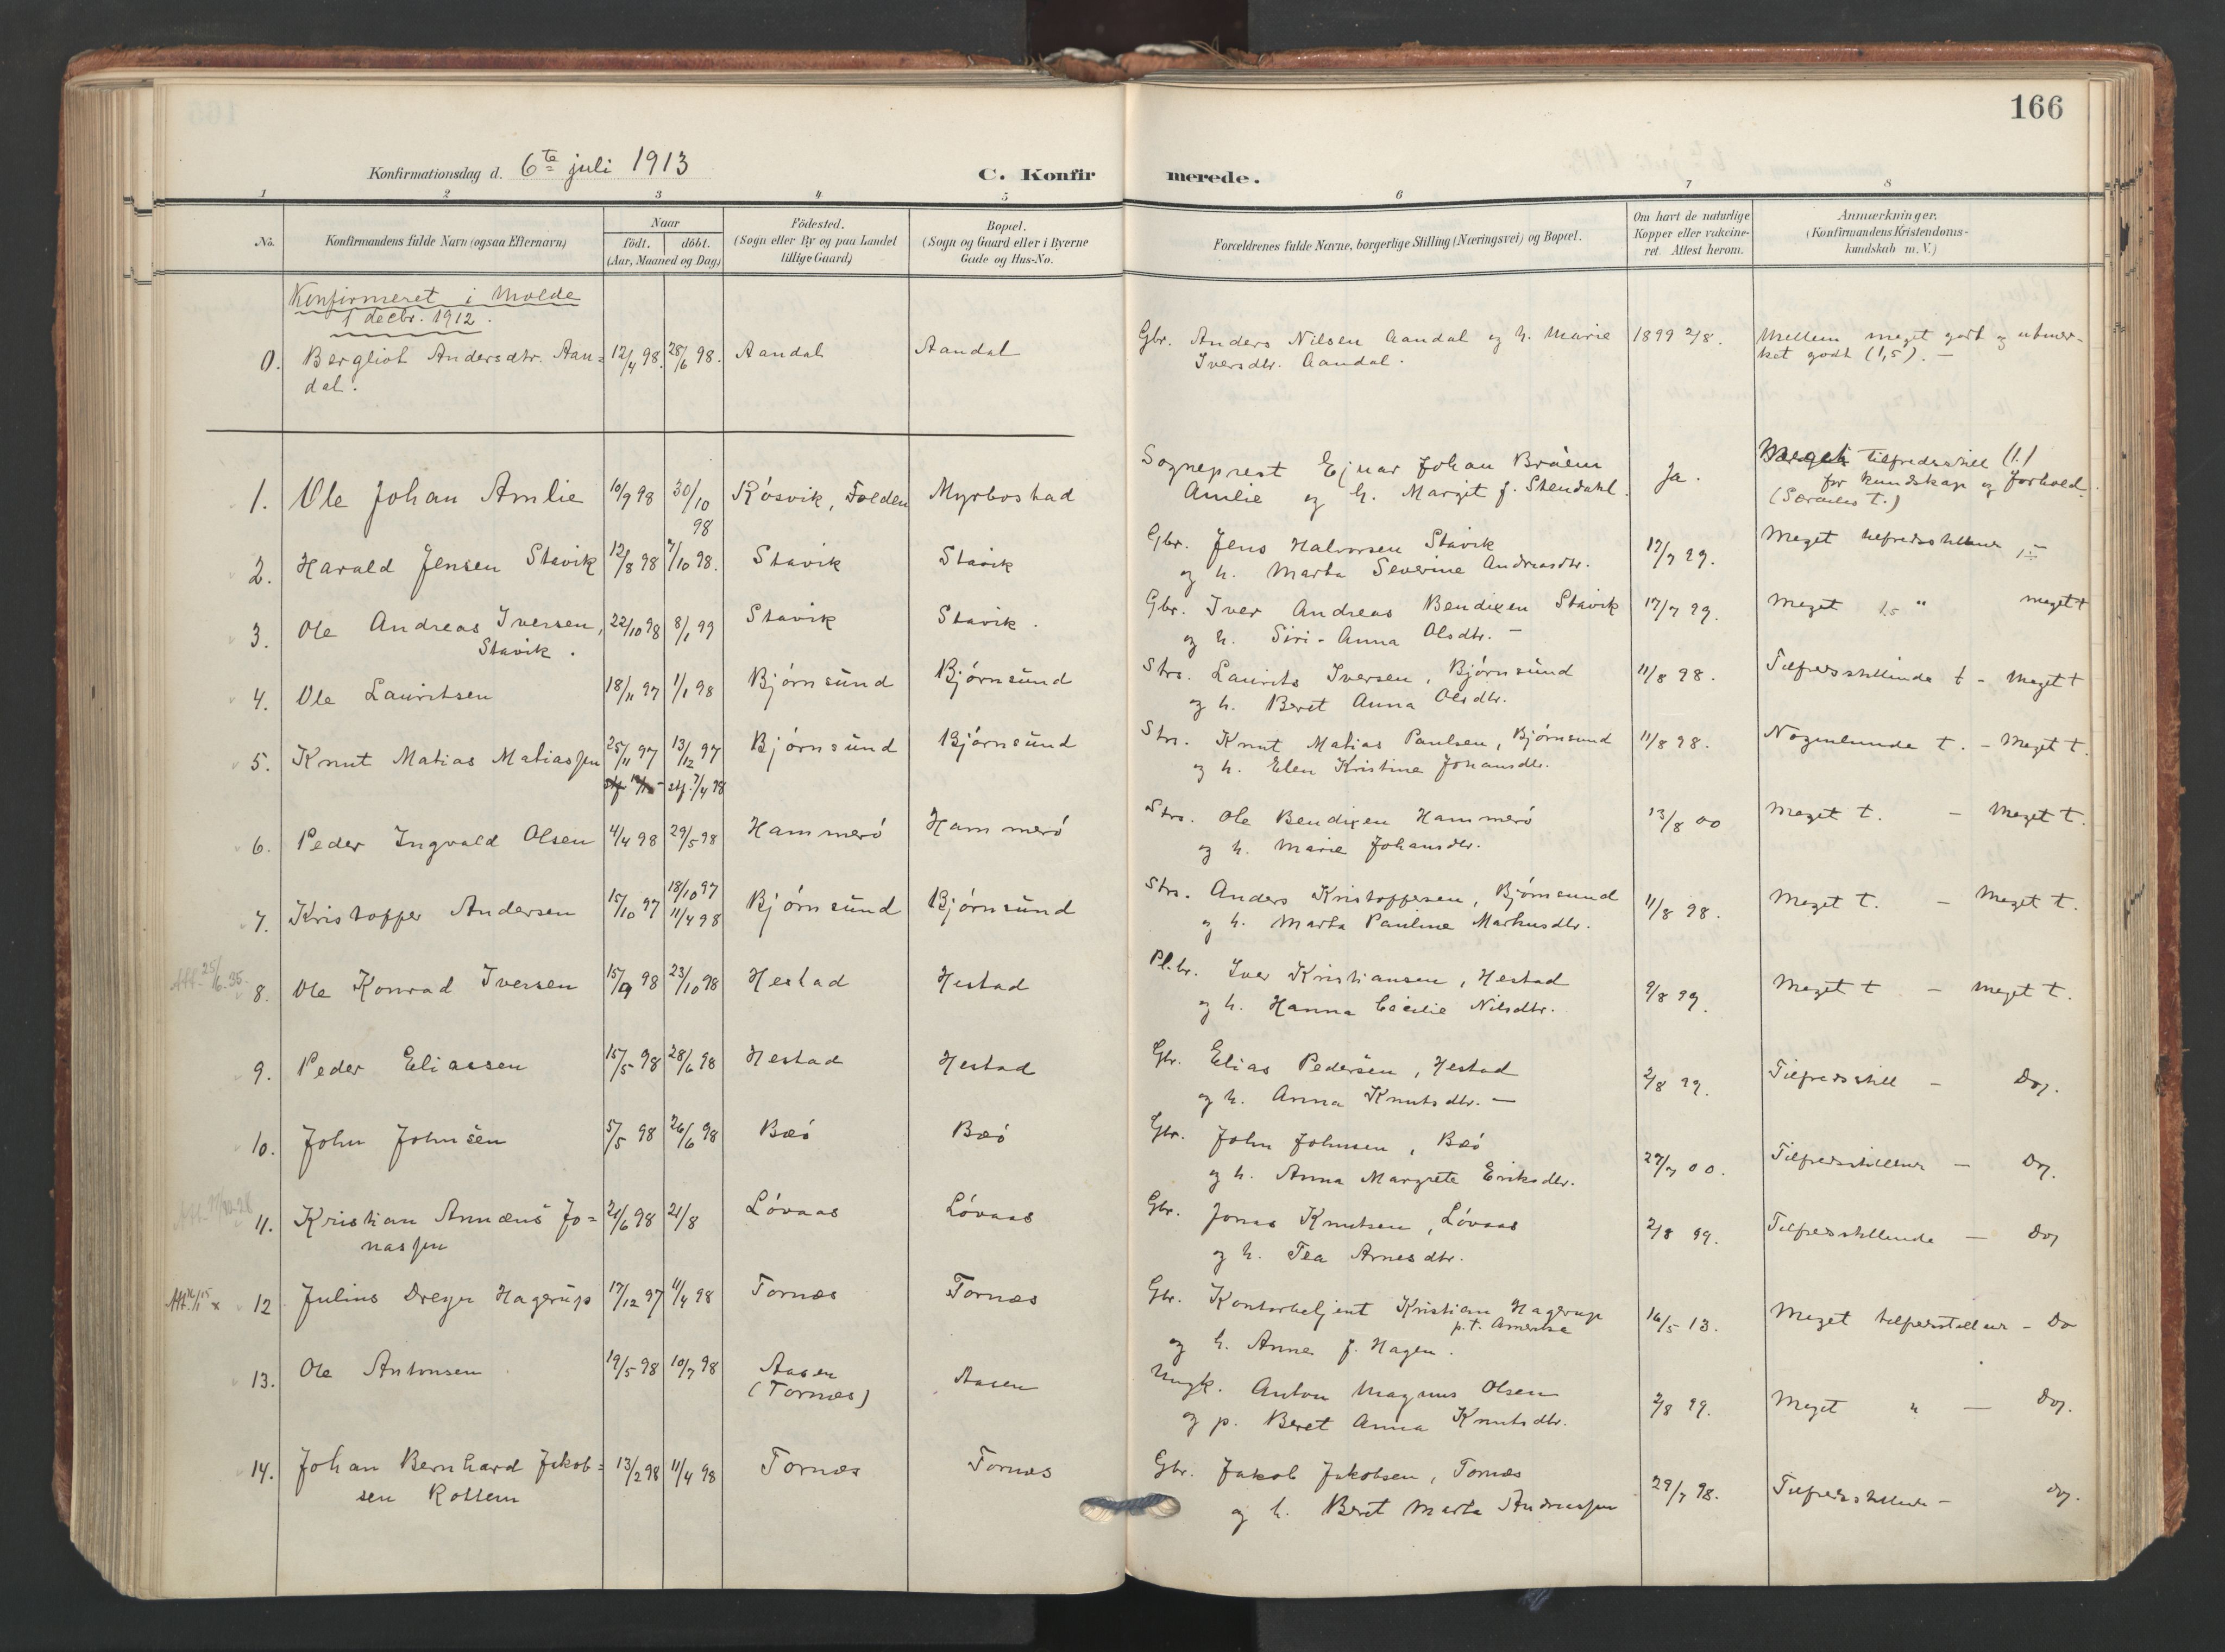 166
Konfirmationsdag d. 6te juli 1913
C. Konfirmerede.
1 2 3 4 5 6 7 8
No.
Konfirmandens fulde Navn (ogsaa Efternavn)
Naar
födt. döbt.
(Aar, Maaned og Dag)
Födested.
(Sogn eller By og paa Landet
tillige Gaard)
Bopæl.
(Sogn og Gaard eller i Byerne
Gade og Hus-No.
Forældrenes fulde Navne, borgerlige Stilling (Næringsvei) og Bopæl.
Om havt de naturlige
Kopper eller vakcine-
ret. Attest herom.
Anmærkninger.
(Konfirmandens Kristendoms-
kundskab m. V.)
Konfirmeret i Molde
1 decbr. 1912.
0. Bergliot Andersdtr. Aan= 12/4 98. 28/6 98. Aandal Aandal Gbr. Anders Nilsen Aandal og h. Marie 1899 2/8. Mellem meget godt og utmær-
dal. Iversdtr. Aandal. ket godt (1,5). —
1. Ole Johan Amlie 10/9 98 30/10 98 Rösvik, Folden Myrbostad Sogneprest Ejnar Johan Bråem Ja. Meget tilfredsstill (1.)
Amlie og h. Margit f. Stendahl. for kundskap og forhold.
(Særdeles t.)
2. Harald Jensen Stavik 12/8 98 7/10 98. Stavik Stavik Gbr. Jens Halvorsen Stavik 17/7 99. Meget tilfredsstillende
og h. Marta Severine Andreasdtr.
3. Ole Andreas Iversen, 22/10 98 8/1 99 Stavik Stavik. Gbr. Iver Andreas Bendixen Stavik 17/7 99. Meget 1.5 " meget t
Stavik. og h. Siri-Anna Olsdtr. —
4. Ole Lauritsen 18/11 97 1/1 98 Björnsund Björnsund Strs. Laurits Iversen, Björnsund 11/8 98. Tilfredsstillende t - Meget t
og h. Beret Anna Olsdtr.
5. Knut Matias Matiassen 25/11 97 13/12 97 Björnsund Björnsund Strs. Knut Matias Paulsen, Björnsund 11/8 98. Nogenlunde t. - Meget t.
stf. 7/4 98 og h. Elen Kristine Johansdtr.
6. Peder Ingvald Olsen 4/4 98 29/5 98 Hammerö Hammerö Strs. Ole Bendixen Hammerö 13/8 00 Meget t. - Meget t.
og h. Marie Johansdtr.
7. Kristoffer Andersen 15/10 97 18/10 97 11/4 98 Björnsund Björnsund Strs. Anders Kristoffersen, Björnsund 11/8 98. Meget t. - Meget t.
og h. Marta Pauline Markusdtr.
Att. 25/6.35. 8. Ole Konrad Iversen 15/9 98 23/10 98 Hestad Hestad Pl.br. Iver Kristiansen, Hestad 9/8 99. Meget t - Meget t.
og h. Hanna Cecilie Nilsdtr.
9. Peder Eliassen 15/5 98 28/6 98 Hestad Hestad Gbr. Elias Pedersen, Hestad 2/8 99. Tilfredsstill - Do.
og h. Anna Knutsdtr. —
10. John Johnsen 5/5 98 26/6 98 Bæö Bæö Gbr. John Johnsen, Bæö 27/7 00. Tilfredsstillende — Do.
og h. Anna Margrete Eriksdtr.
11. Kristian Annæus Jo= 21/6 98 21/8 Lövaas Lövaas Gbr. Jonas Knutsen, Lövaas 2/8 99. Tilfredsstillende — Do
nassen og h. Tea Arnesdtr.
12 Julius Dreyer Hagerup 17/12 97 11/4 98 Tornæs Tornæs Gbr. Kontorbetjent Kristian Hagerup 16/5 13. Meget tilfredsstillende - Do
p.t. Amerika
og h. Anne f. Hagen.
13. Ole Antonsen 19/5 98 10/7 98 Aasen Aasen Ungk. Anton Magnus Olsen 2/8 99. Meget " — Do.
(Tornæs) og p. Beret Anna Knutsdtr.
14. Johan Bernhard Jakob= 13/2 98 11/4 98 Tornæs Tornæs Gbr. Jakob Jakobsen, Tornæs 29/7 98. Tilfredsstillende - Do.
sen Rottem og h. Beret Marta Andreassen